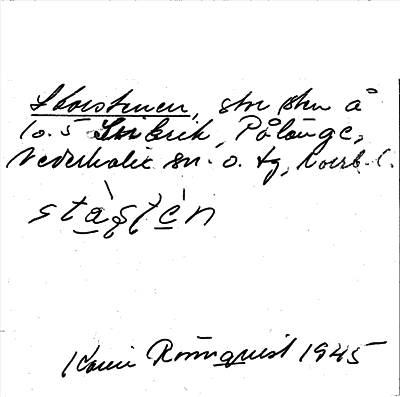 Skorstenen, stor sten å
10.5 Seibrik, Pålänge,
Nederkalix sn. o. tg, Norrb. l.
Karin Rönnquist 1945